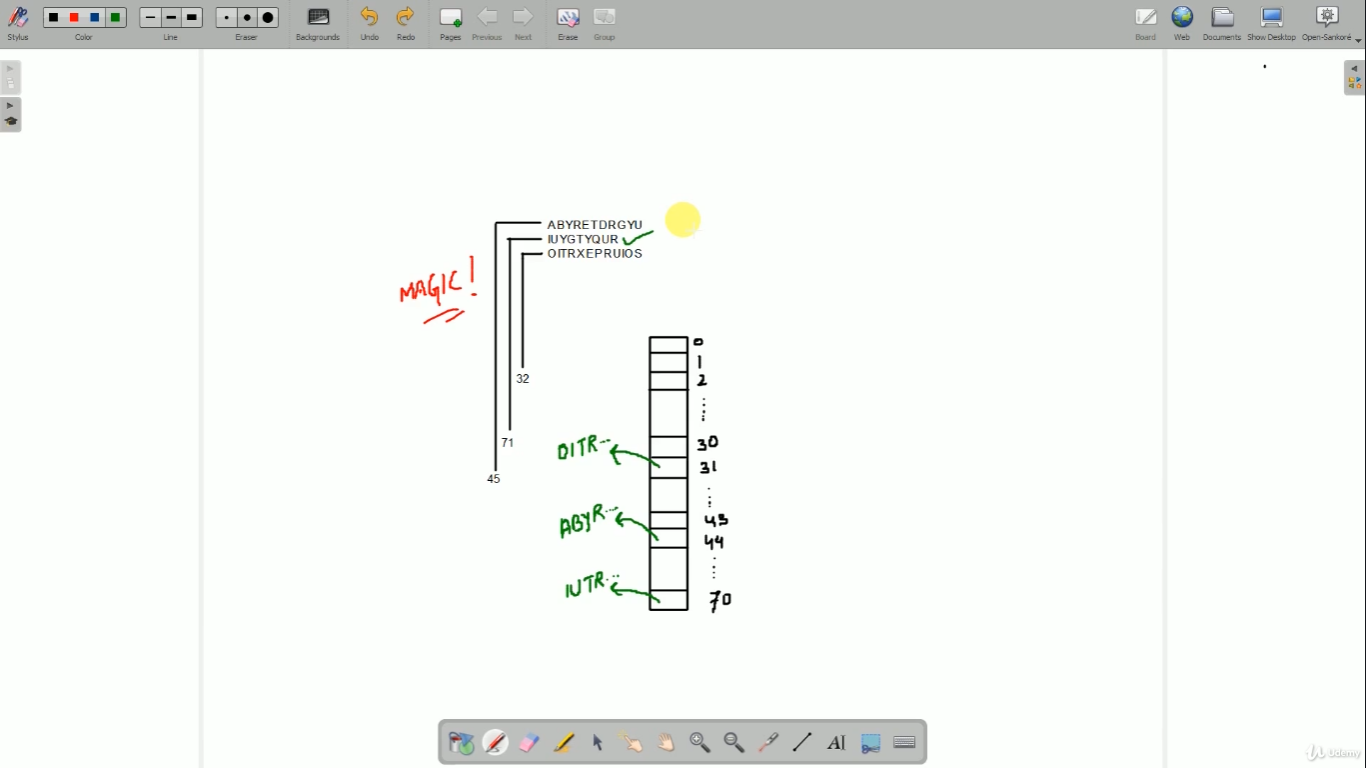 Stylus Color Line Eraser Backgrounds Undo Redo Pages Previous Next Erase Group Board Web Documents Show Desktop Open-Sankoré
ABYRETDRGYU
IUYGTYQUR
OITRXEPRUIOS
MAGIC!
0
1
32
2
71
30
OITR...
31
45
ABYR...
43
44
IUTR...
70
AI
Udemy